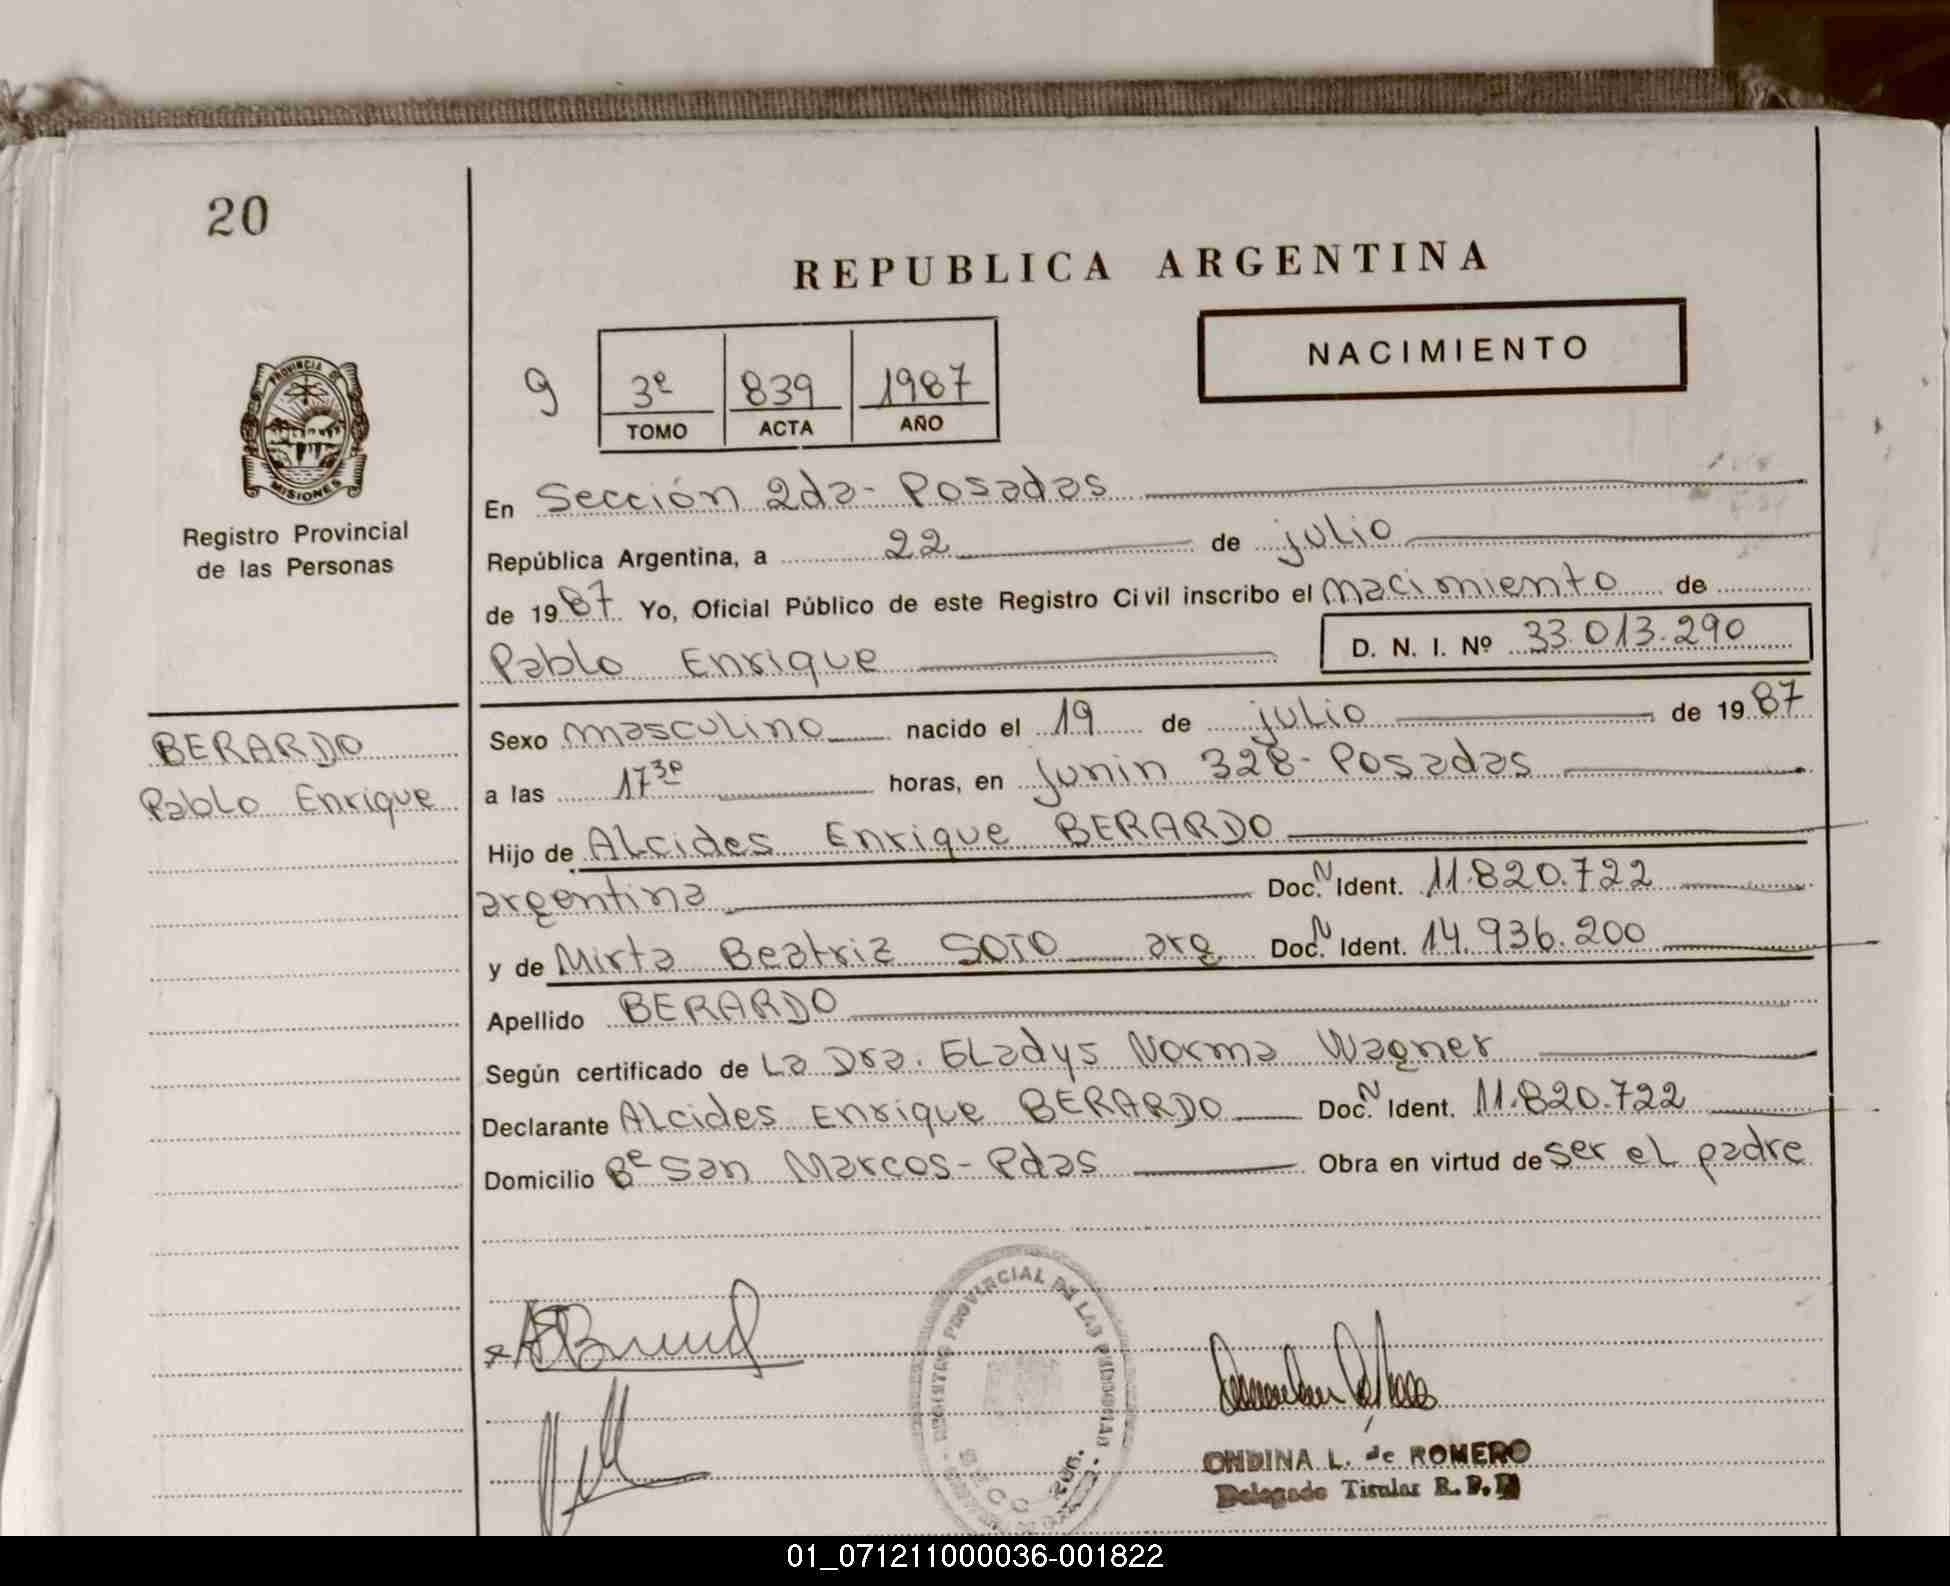 20
REPUBLICA ARGENTINA
NACIMIENTO
9
3º 839 1987
TOMO ACTA AÑO
PROVINCIA DE
MISIONES
Registro Provincial
de las Personas
En Sección 2da - Posadas
República Argentina, a 22 de julio
de 1987 Yo, Oficial Público de este Registro Civil inscribo el nacimiento de
Pablo Enrique D. N. I. Nº 33.013.290
BERARDO
Pablo Enrique
Sexo masculino nacido el 19 de julio de 1987
a las 17³º horas, en Junin 328 - Posadas
Hijo de Alcides Enrique BERARDO
argentina Doc. N Ident. 11.820.722
y de Mirta Beatriz SOTO arg Doc. N Ident. 14.936.200
Apellido BERARDO
Según certificado de La Dra. Gladys Norma Wagner
Declarante Alcides Enrique BERARDO Doc. N Ident. 11.820.722
Domicilio Bº San Marcos - Pdas Obra en virtud de ser el padre
REGISTRO PROVINCIAL DE LAS PERSONAS
ONDINA L. de ROMERO
Delegado Titular R. P. P.
01_071211000036-001822